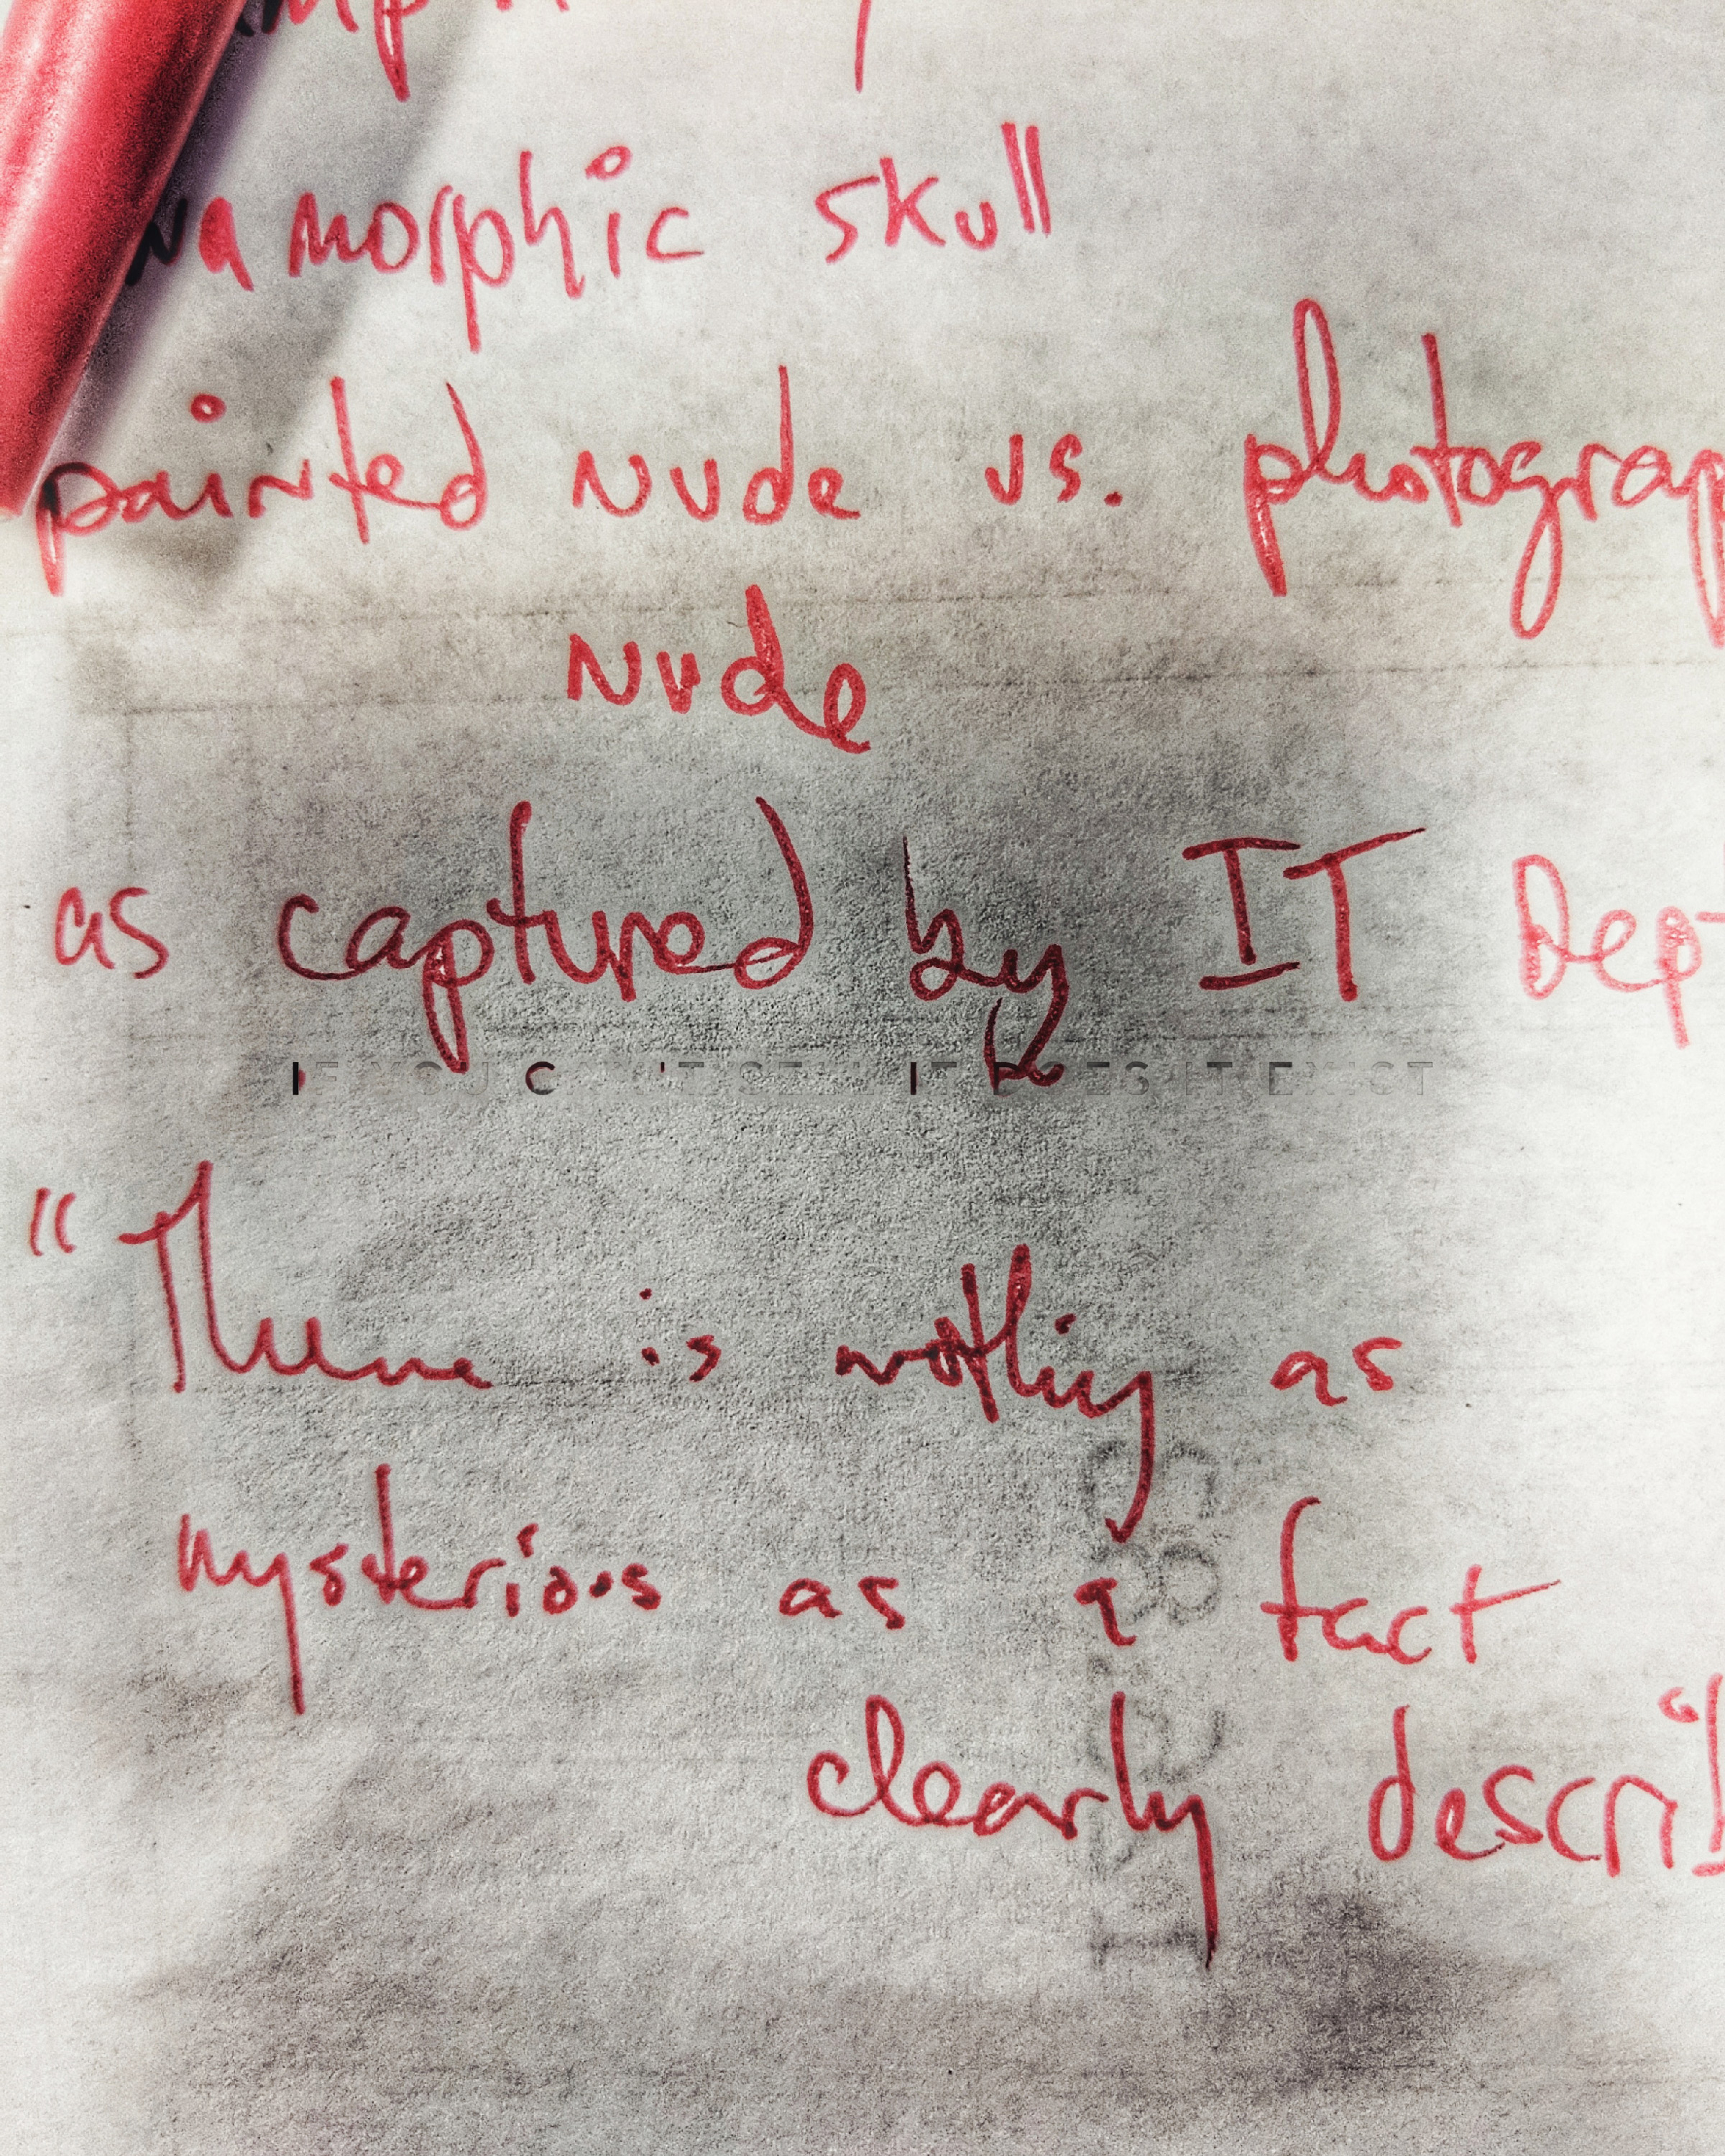 namorphic skull
painted nude vs. photograp
nude
as captured by IT Dep
IF YOU CAN'T SEE IT DOES IT EXIST
"There is nothing as
mysterious as a fact
clearly describ